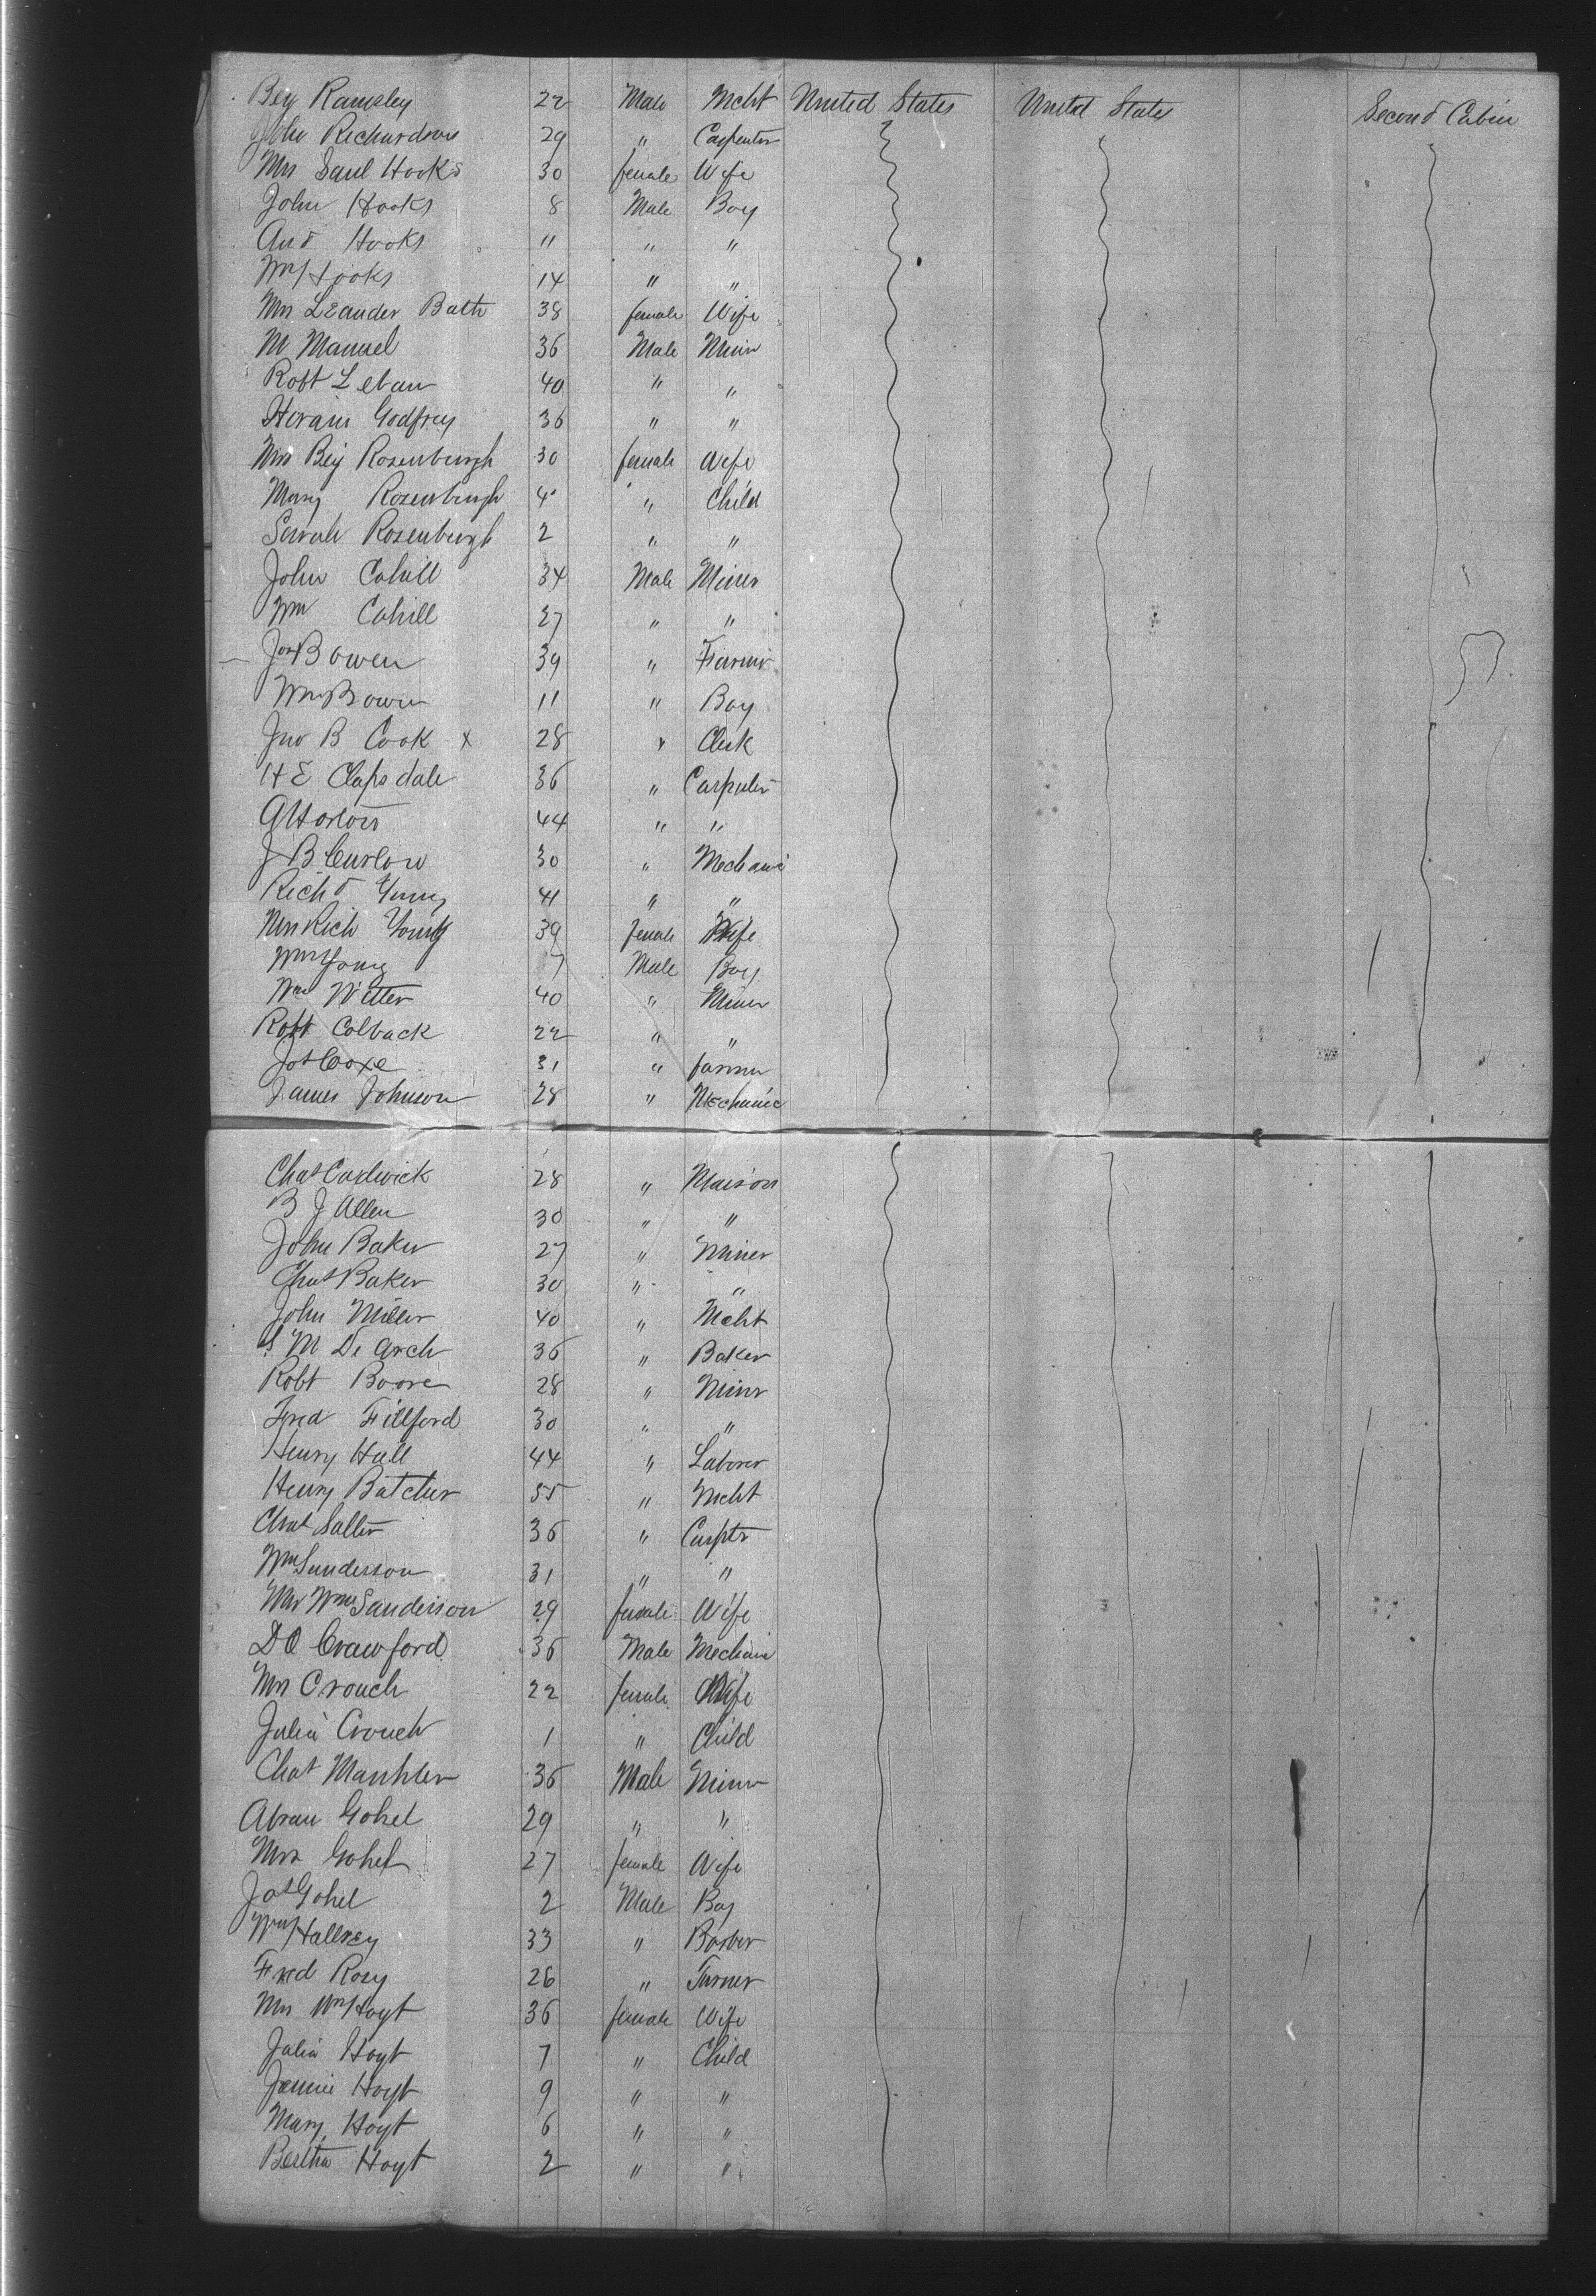 Benj Ramsley 22 Male Mcht United States United States Second Cabin
John Richardson 29 " Carpenter
Mrs Saml Hooks 30 female Wife
John Hooks 8 Male Boy
And Hooks 11 " "
Wm Hooks 14 " "
Mrs Leander Bath 38 female Wife
M Manuel 36 Male Miner
Robt Leban 40 " "
Hiram Godfrey 36 " "
Mrs Benj Rosenburgh 30 female Wife
Mary Rosenburgh 4 " Child
Sarah Rosenburgh 2 " "
John Cahill 34 Male Miner
Wm Cahill 27 " "
Jos Bowen 39 " Farmer
Wm Bowen 11 " Boy
Jno B Cook x 28 " Clerk
H E Clapsdale 36 " Carpenter
44 " "
J B 30 " Mechanic
Richd Young 41 " "
Mrs Rich Young 39 female Wife
Wm Young 7 Male Boy
Wm Witter 40 " Miner
Robt Colback 22 " "
Jos Coxe 31 " farmer
James Johnson 28 " Mechanic
Chas Cadwick 28 " Maison
B J Allen 30 " "
John Baker 27 " Miner
Chas Baker 30 " "
John Miller 40 " Mcht
S M De Arch 36 " Baker
Robt Boore 28 " Miner
Fred Fillford 30 " "
Henry Hall 44 " Laborer
Henry Butcher 55 " Mcht
Chas Salter 36 " Carptr
Wm Sanderson 31 " "
Mrs Wm Sanderson 29 female Wife
D O Crawford 36 Male Mechanic
Mrs Crouch 22 female Wife
Julia Crouch 1 " Child
Chas Manhler 36 Male Miner
Abram Gohel 29 " "
Mrs Gohel 27 female Wife
Jas Gohel 2 Male Boy
Wm Hallvey 33 " Barber
Fred Rosy 26 " Turner
Mrs Wm Hoyt 36 female Wife
Julia Hoyt 7 " Child
Jennie Hoyt 9 " "
Mary Hoyt 6 " "
Bertha Hoyt 2 " "